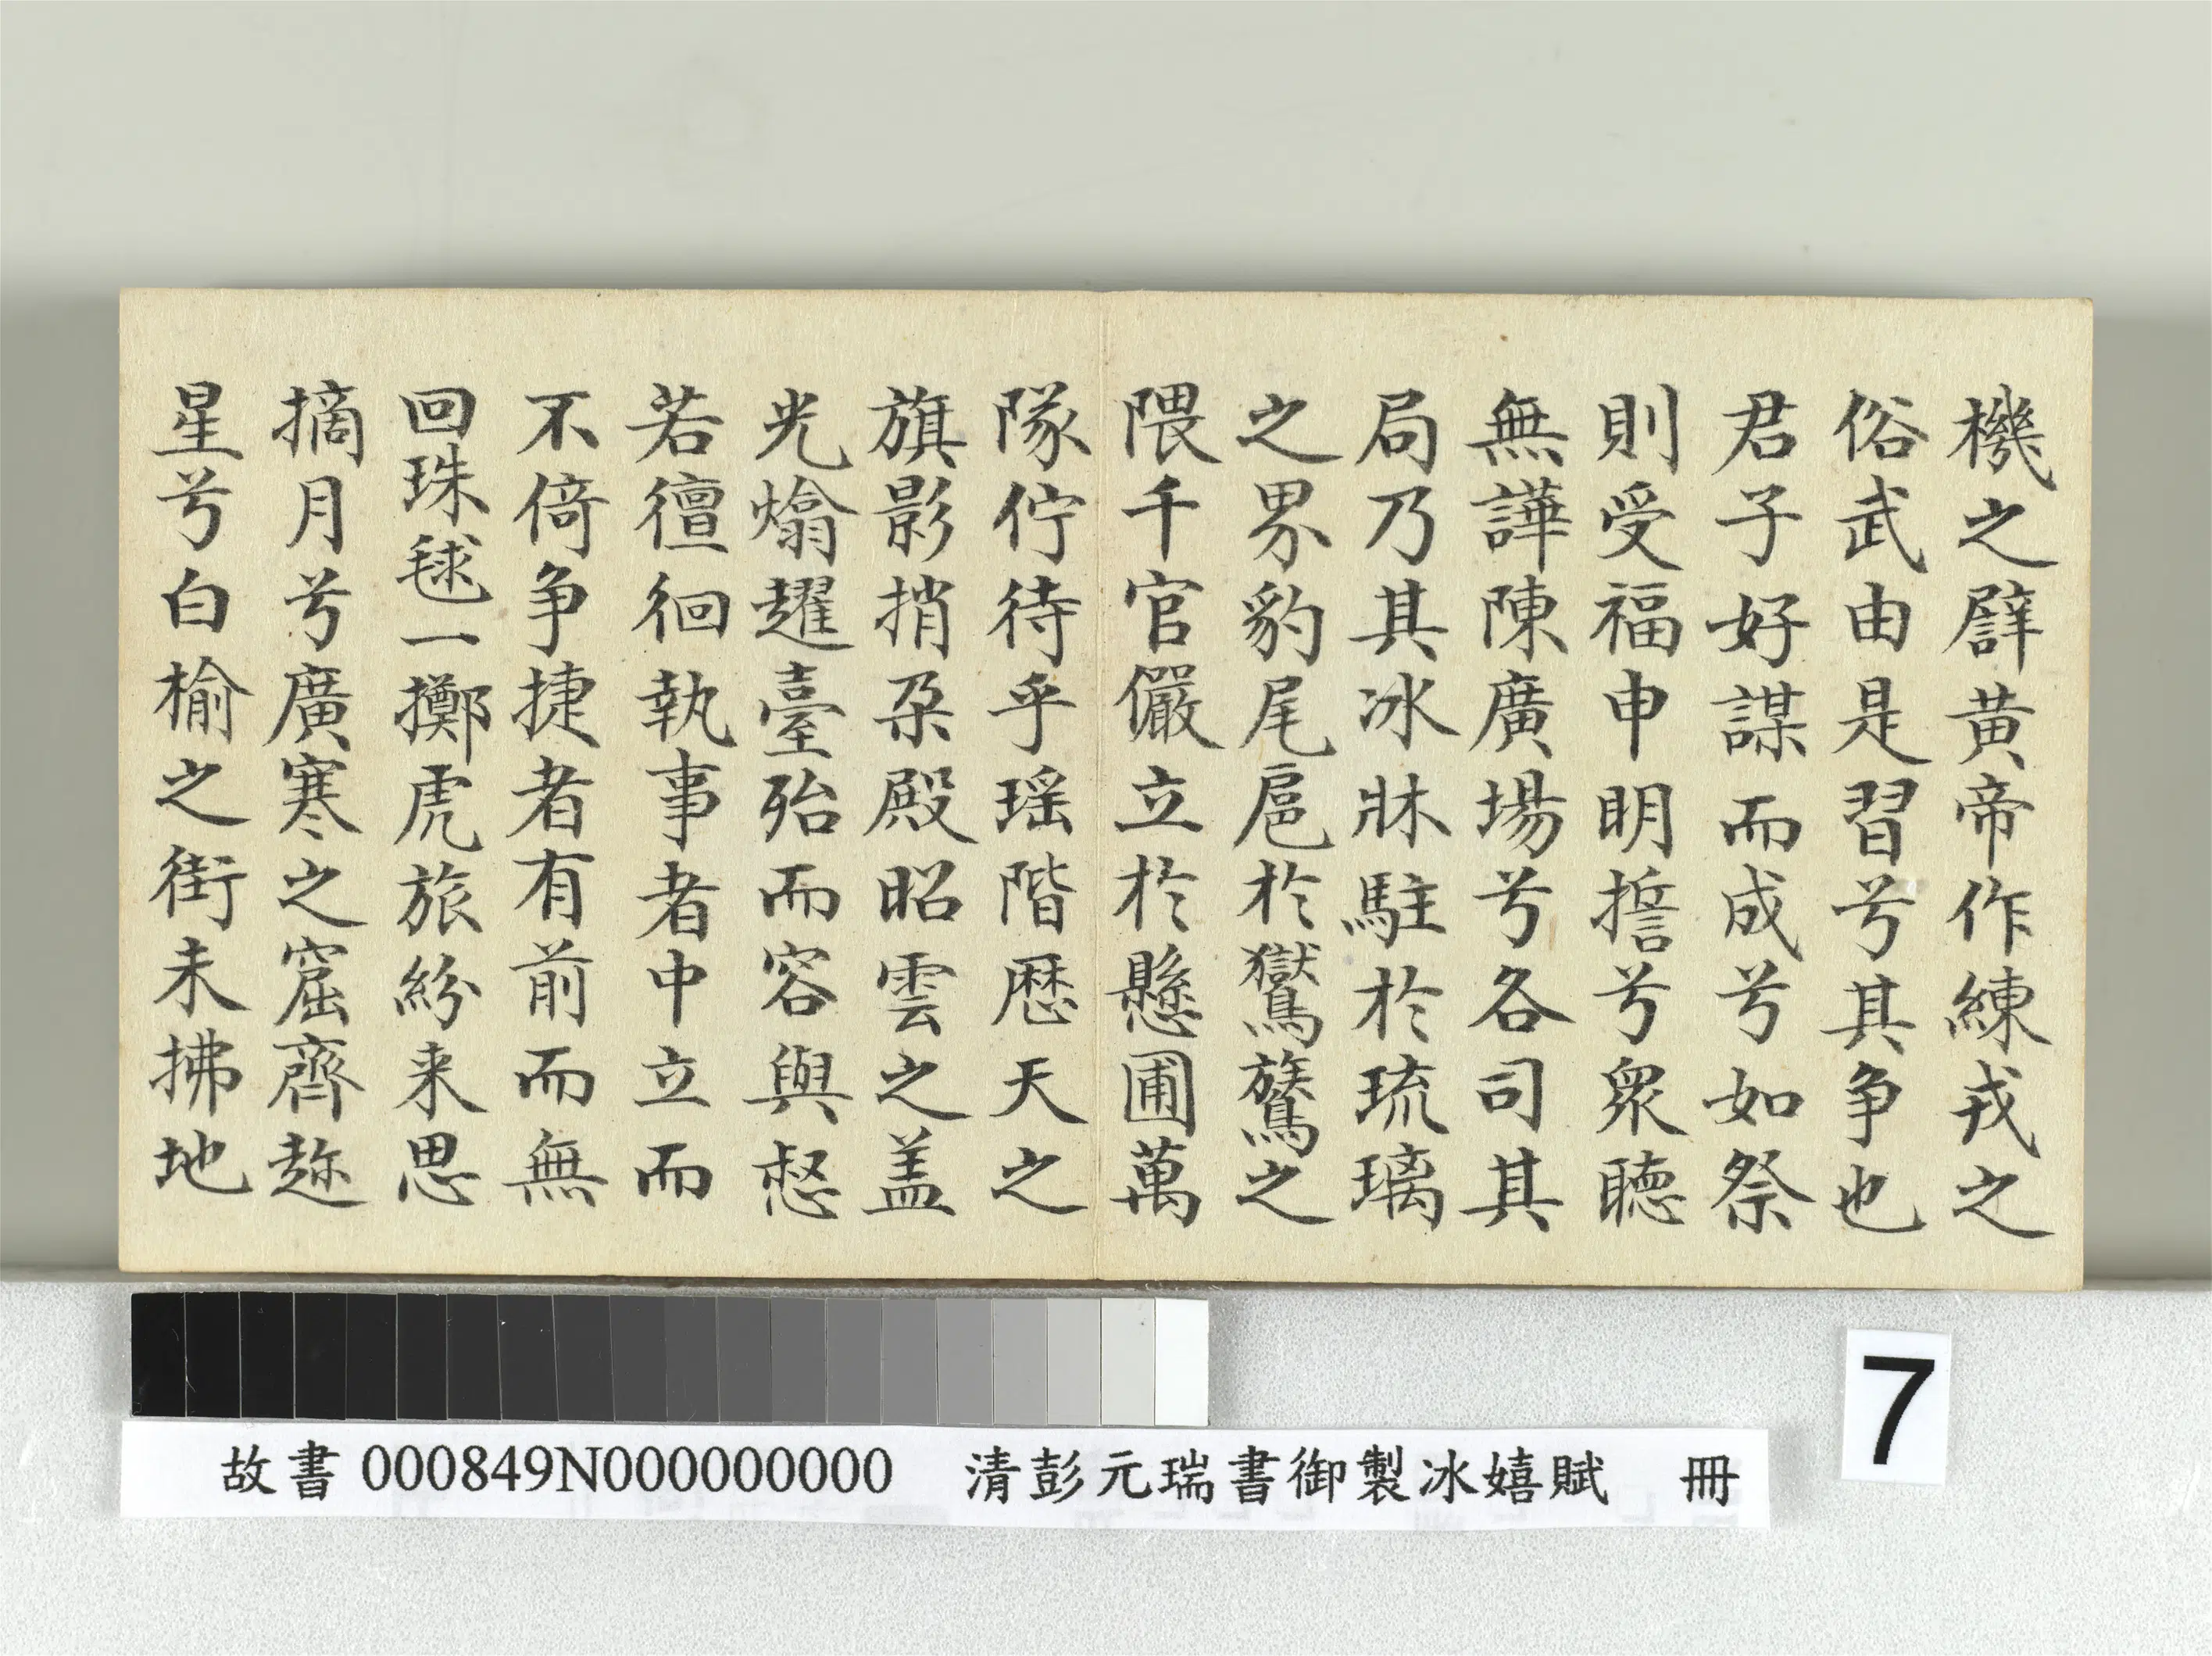 機之譬黃帝作練戎之
俗武由是習兮其争也
君子好謀而成兮如祭
則受福申明誓兮眾聽
無譁陳廣場兮各司其
局乃其冰牀駐於琉璃
之界豹尾扈於鸑鷟之
隈千官儼立於懸圃萬
隊佇待乎瑤階歷天之
旗影捎朶殿昭雲之盖
光熻趯臺殆而容與愸
若徸徊執事者中立而
不倚争捷者有前而無
回珠毬一擲虎旅紛来思
摘月兮廣寒之窟齊趂
星兮白榆之街未拂地
故書000849N000000000 清彭元瑞書御製冰嬉賦 冊
7